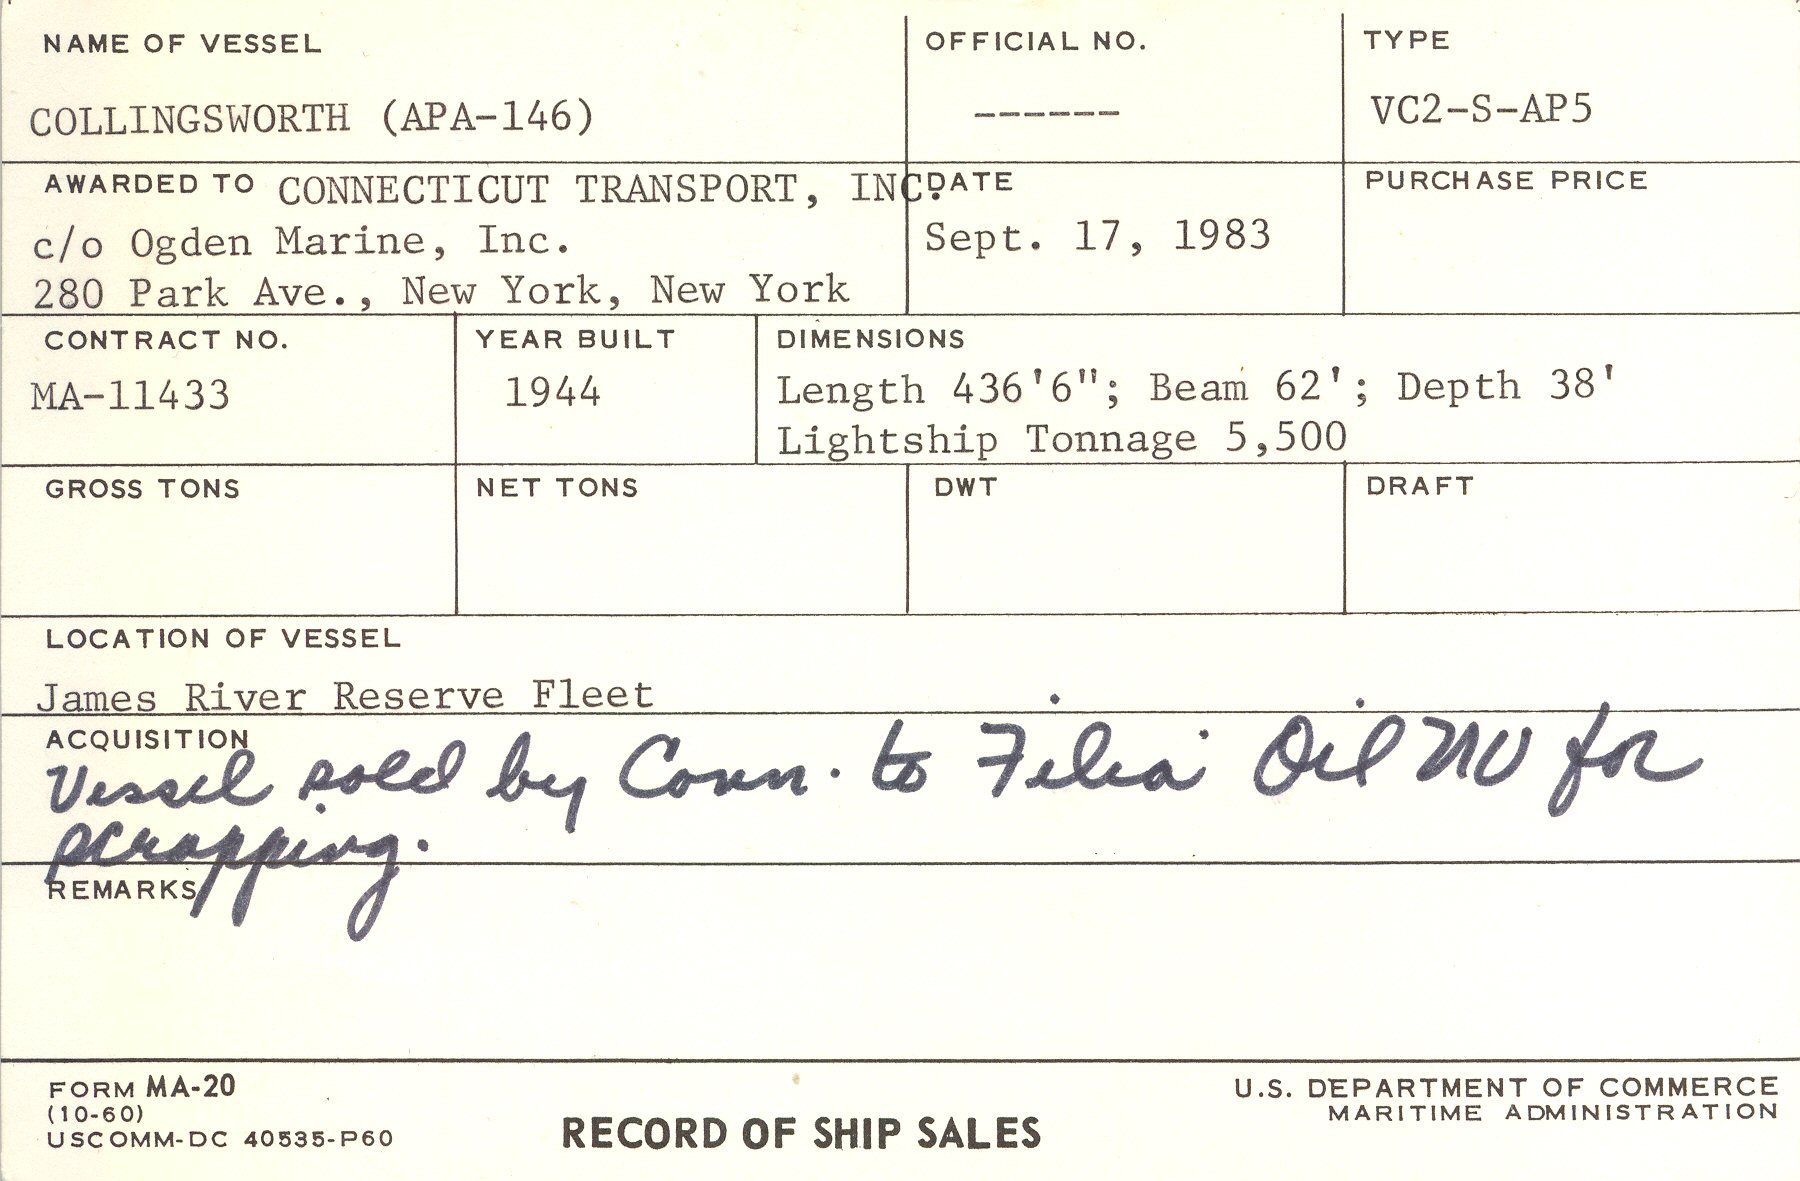 NAME OF VESSEL
COLLINGSWORTH (APA-146)
OFFICIAL NO.
------
TYPE
VC2-S-AP5
AWARDED TO CONNECTICUT TRANSPORT, INC.
c/o Ogden Marine, Inc.
280 Park Ave., New York, New York
DATE
Sept. 17, 1983
PURCHASE PRICE
CONTRACT NO.
MA-11433
YEAR BUILT
1944
DIMENSIONS
Length 436'6"; Beam 62'; Depth 38'
Lightship Tonnage 5,500
GROSS TONS
NET TONS
DWT
DRAFT
LOCATION OF VESSEL
James River Reserve Fleet
ACQUISITION
Vessel sold by Conn. to Filia Oil NV for
scrapping.
REMARKS
FORM MA-20
(10-60)
USCOMM-DC 40535-P60
RECORD OF SHIP SALES
U.S. DEPARTMENT OF COMMERCE
MARITIME ADMINISTRATION